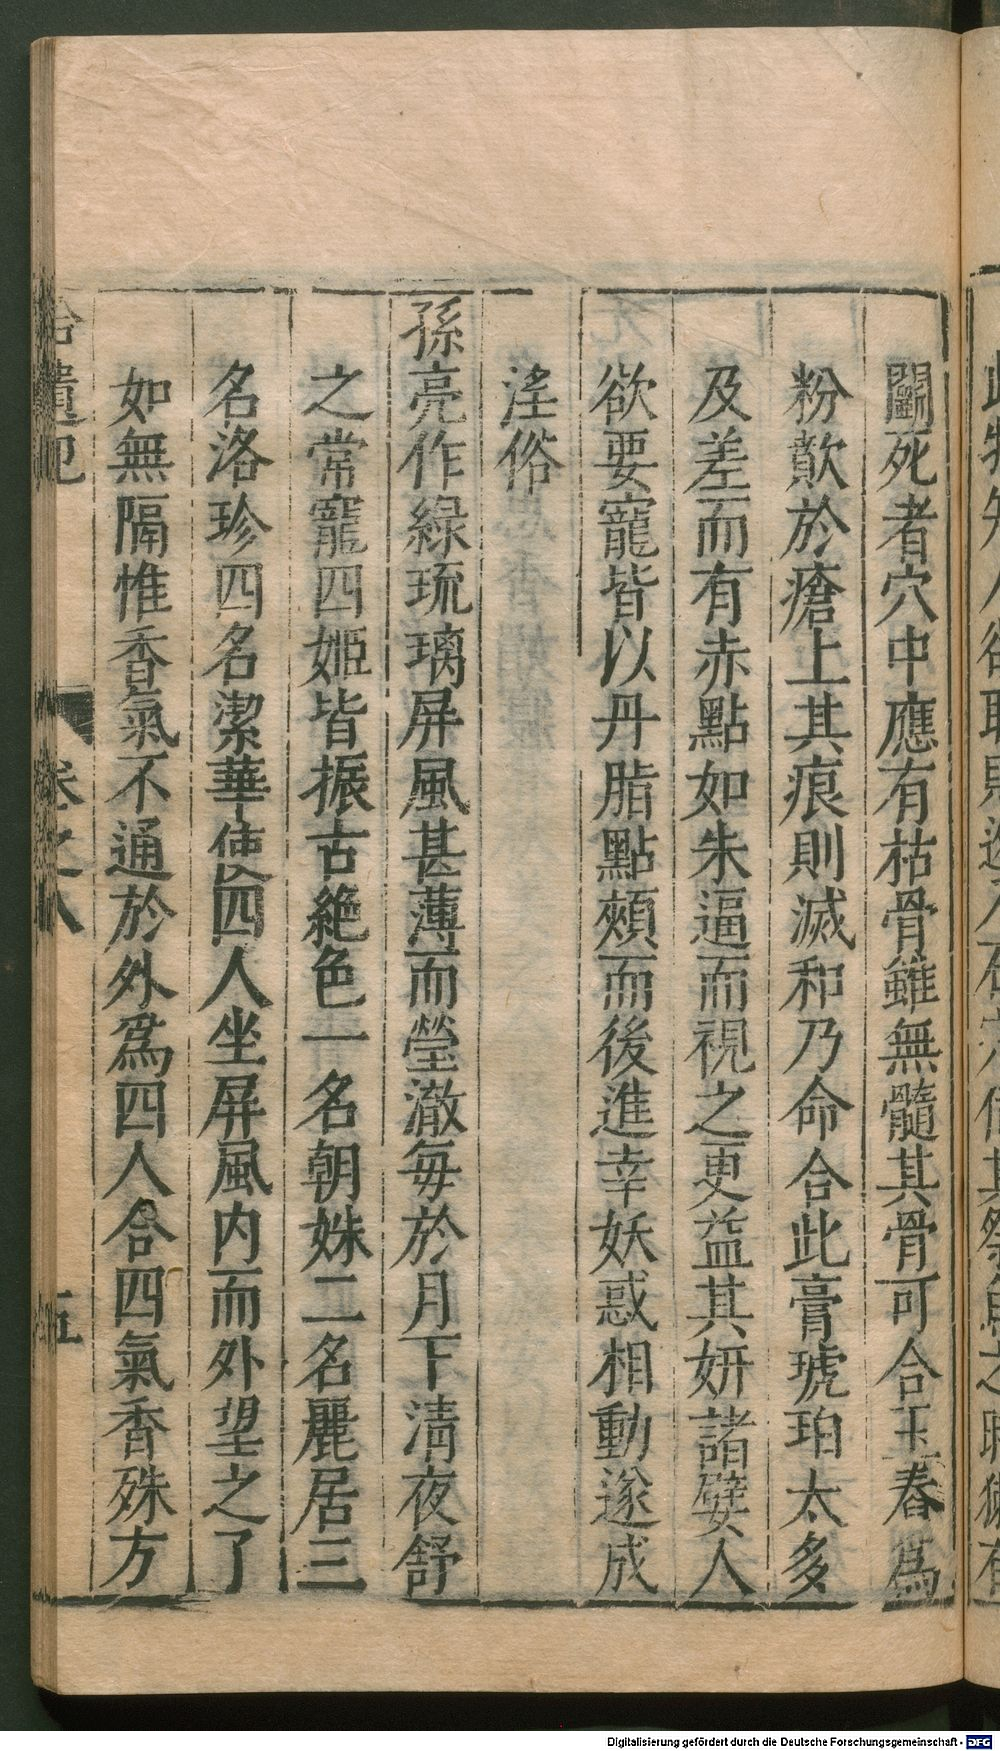 鬭死者穴中應有枯骨雖無髓其骨可合玉舂爲
粉歕於瘡上其痕則滅和乃命合此膏琥珀太多
及差而有赤點如朱逼而視之更益其妍諸嬖人
欲要寵皆以丹脂點頰而後進幸妖惑相動遂成
淫俗
孫亮作綠琉璃屏風甚薄而瑩澈每於月下淸夜舒
之常寵四姬皆振古絶色一名朝姝二名麗居三
名洛珍四名潔華使四人坐屏風內而外望之了
如無隔惟香氣不通於外爲四人合四氣香殊方
卷之八
五
Digitalisierung gefördert durch die Deutsche Forschungsgemeinschaft - DFG